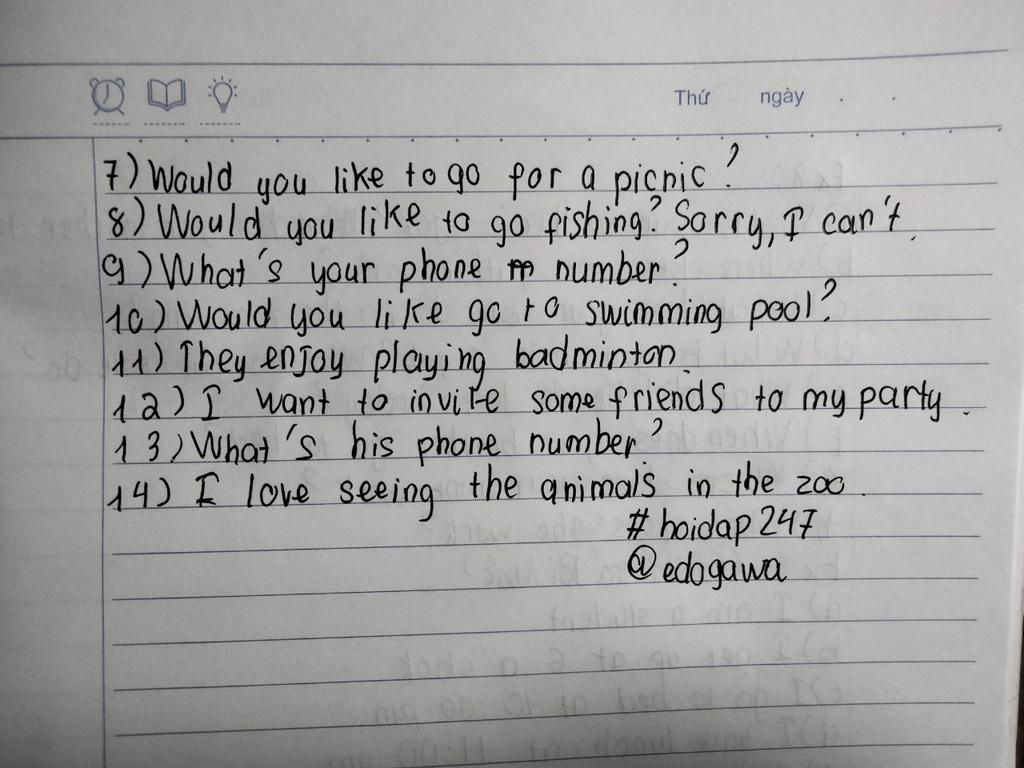 Thứ ngày . .
7) Would you like to go for a picnic?
8) Would you like to go fishing? Sorry, I can't.
9) What's your phone number?
10) Would you like go to swimming pool?
11) They enjoy playing badminton.
12) I want to invite some friends to my party.
13) What's his phone number?
14) I love seeing the animals in the zoo.
#hoidap247
@edogawa